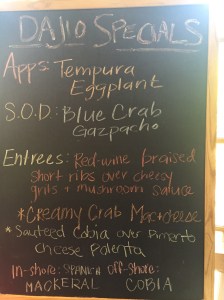 DAJIO SPECIALS
Apps: Tempura
Eggplant
S.O.D: Blue Crab
Gazpacho
Entrees: Red-wine braised
short ribs over cheesy
grits + mushroom sauce
*Creamy Crab Mac+cheese
*Sauteed Cobia over Pimento
Cheese Polenta
In-shore: SPANISH Off-shore:
MACKERAL COBIA